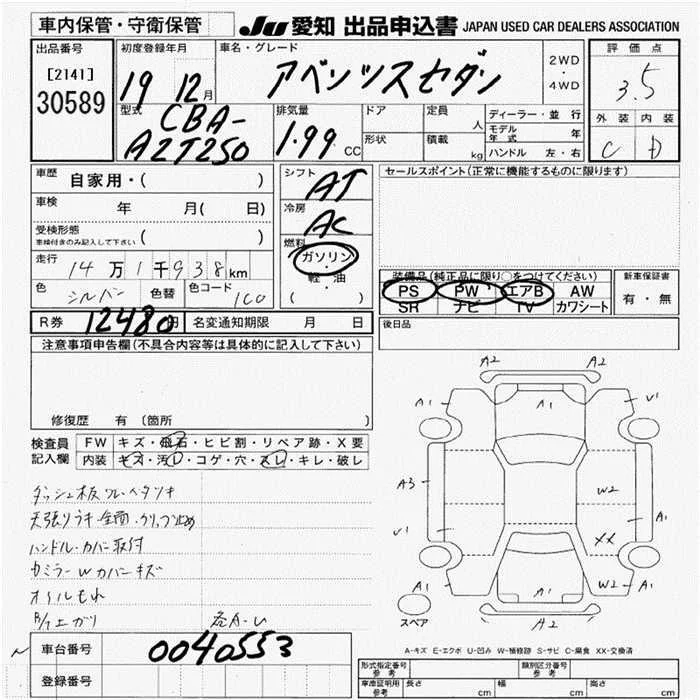 車内保管・守衛保管
JU 愛知 出品申込書 JAPAN USED CAR DEALERS ASSOCIATION
出品番号
[2141]
30589
初度登録年月
19 12月
車名・グレード
アベンツスセダン
2WD
・
4WD
評価点
3.5
外装 内装
C D
型式
CBA-
AZT250
排気量
1.99 CC
ドア
形状
定員 人
積載 kg
ディーラー・並行
モデル年式 年
ハンドル 左・右
車歴 自家用・( )
車検 年 月( 日)
受検形態
車検付きのみ記入して下さい ( )
走行 14万1千938km
色 シルバー 色替 色コード 1C0
シフト AT
冷房 AC
燃料
ガソリン
・
軽・油
( )
セールスポイント(正常に機能するものに限ります)
装備品(純正品に限り○をつけてください)
PS PW エアB AW
SR ナビ TV カワシート
新車保証書
有・無
R券 12480円 名変通知期限 月 日
後日品
注意事項申告欄(不具合内容等は具体的に記入して下さい)
修復歴 有(箇所 )
検査員記入欄
FW キズ・飛石・ヒビ割・リペア跡・X要
内装 キズ・汚レ・コゲ・穴・スレ・キレ・破レ
天張りウキ 全面
ハンドル・カバー取付
カバーキズ
オイルもれ
A2 A2
A1 A1 U1
A3 W2
U1 A1
XX
A1 A1 W2 A1
A2
スペア
A-キズ E-エクボ U-凹み W-補修跡 S-サビ C-腐食 XX-交換済
車台番号 0040553
登録番号
形式指定番号 参考
類別区分番号 参考
車庫証明用 参考 長さ cm 幅 cm 高さ cm